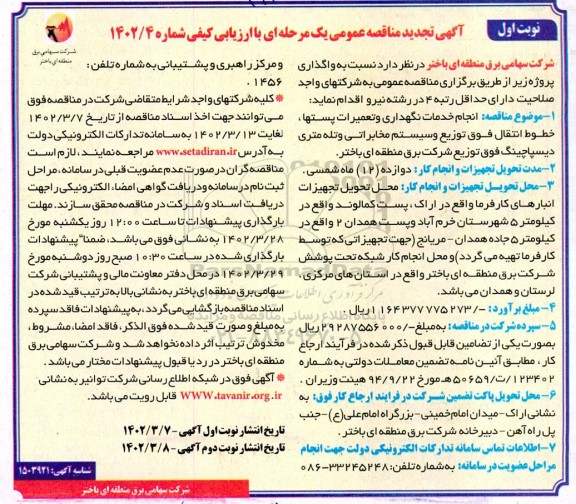 نوبت اول
آگهی تجدید مناقصه عمومی یک مرحله ای با ارزیابی کیفی شماره ۱۴۰۲/۴
شرکت سهامی برق
منطقه ای باختر
شرکت سهامی برق منطقه ای باختر در نظر دارد نسبت به واگذاری
پروژه زیر از طریق برگزاری مناقصه عمومی به شرکتهای واجد
صلاحیت دارای حداقل رتبه ۴ در رشته نیرو اقدام نماید:
۱-موضوع مناقصه: انجام خدمات نگهداری وتعمیرات پستها،
خطوط انتقال فوق توزیع وسیستم مخابراتی وتله متری
دیسپاچینگ فوق توزیع شرکت برق منطقه ای باختر.
۲-مدت تحویل تجهیزات و انجام کار: دوازده (۱۲) ماه شمسی.
۳-محل تحویل تجهیزات و انجام کار: محل تحویل تجهیزات
انبارهای کارفرما واقع در اراک، پست کمالوند واقع در
کیلومتر ۵ شهرستان خرم آباد وپست همدان ۲ واقع در
کیلومتر ۵ جاده همدان - مریانج (جهت تجهیزاتی که توسط
کارفرما تهیه می گردد) و محل انجام کار شبکه تحت پوشش
شرکت برق منطقه ای باختر واقع در استان های مرکزی
لرستان و همدان می باشد.
۴-مبلغ برآورد: -/۱۱۶۴۳۷۷۷۷۵۲۷۳ ریال
۵-سپرده شرکت در مناقصه: به مبلغ-/۲۹۲۸۷۵۵۶۰۰۰ ریال
بصورت یکی از تضامین قابل قبول ذکر شده در فرآیند ارجاع
کار، مطابق آئین نامه تضمین معاملات دولتی به شماره
۱۲۳۴۰۲/ت۵۰۶۵۹هـ مورخ ۹۴/۹/۲۲ هیئت وزیران.
۶-محل تحویل پاکت تضمین شرکت در فرایند ارجاع کار فوق: به
نشانی اراک-میدان امام خمینی-بزرگراه امام علی(ع)-جنب
پل راه آهن - دبیرخانه شرکت برق منطقه ای باختر.
۷-اطلاعات تماس سامانه تدارکات الکترونیکی دولت جهت انجام
مراحل عضویت در سامانه: به شماره تلفن: ۳۳۲۴۵۲۴۸-۰۸۶
و مرکز راهبری و پشتیبانی به شماره تلفن:
۱۴۵۶.
* کلیه شرکتهای واجد شرایط متقاضی شرکت در مناقصه فوق
می توانند جهت اخذ اسناد مناقصه از تاریخ ۱۴۰۲/۳/۷
لغایت ۱۴۰۲/۳/۱۳ به سامانه تدارکات الکترونیکی دولت
به آدرس www.setadiran.ir مراجعه نمایند، لازم است
مناقصه گران در صورت عدم عضویت قبلی در سامانه، مراحل
ثبت نام در سامانه و دریافت گواهی امضاء الکترونیکی را جهت
دریافت اسناد و شرکت در مناقصه محقق سازند. مهلت
بارگذاری پیشنهادات تا ساعت ۱۲:۰۰ روز یکشنبه مورخ
۱۴۰۲/۳/۲۸ به نشانی فوق می باشد، ضمناً پیشنهادات
بارگذاری شده در ساعت ۱۰:۳۰ صبح روز دوشنبه مورخ
۱۴۰۲/۳/۲۹ در محل دفتر معاونت مالی و پشتیبانی شرکت
سهامی برق منطقه ای باختر به نشانی بالا به ترتیب قید شده در
اسناد مناقصه بازگشایی می گردد، به پیشنهادات فاقد سپرده
به مبلغ و صورت قید شده فوق الذکر، فاقد امضا، مشروط،
مخدوش ترتیب اثر داده نخواهد شد و شرکت سهامی برق
منطقه ای باختر در رد یا قبول پیشنهادات مختار می باشد.
* آگهی فوق در شبکه اطلاع رسانی شرکت توانیر به نشانی
www.tavanir.org.ir قابل رویت می باشد.
تاریخ انتشار نوبت اول آگهی - ۱۴۰۲/۳/۷
تاریخ انتشار نوبت دوم آگهی - ۱۴۰۲/۳/۸
شناسه آگهی: ۱۵۰۳۹۲۱
شرکت سهامی برق منطقه ای باختر